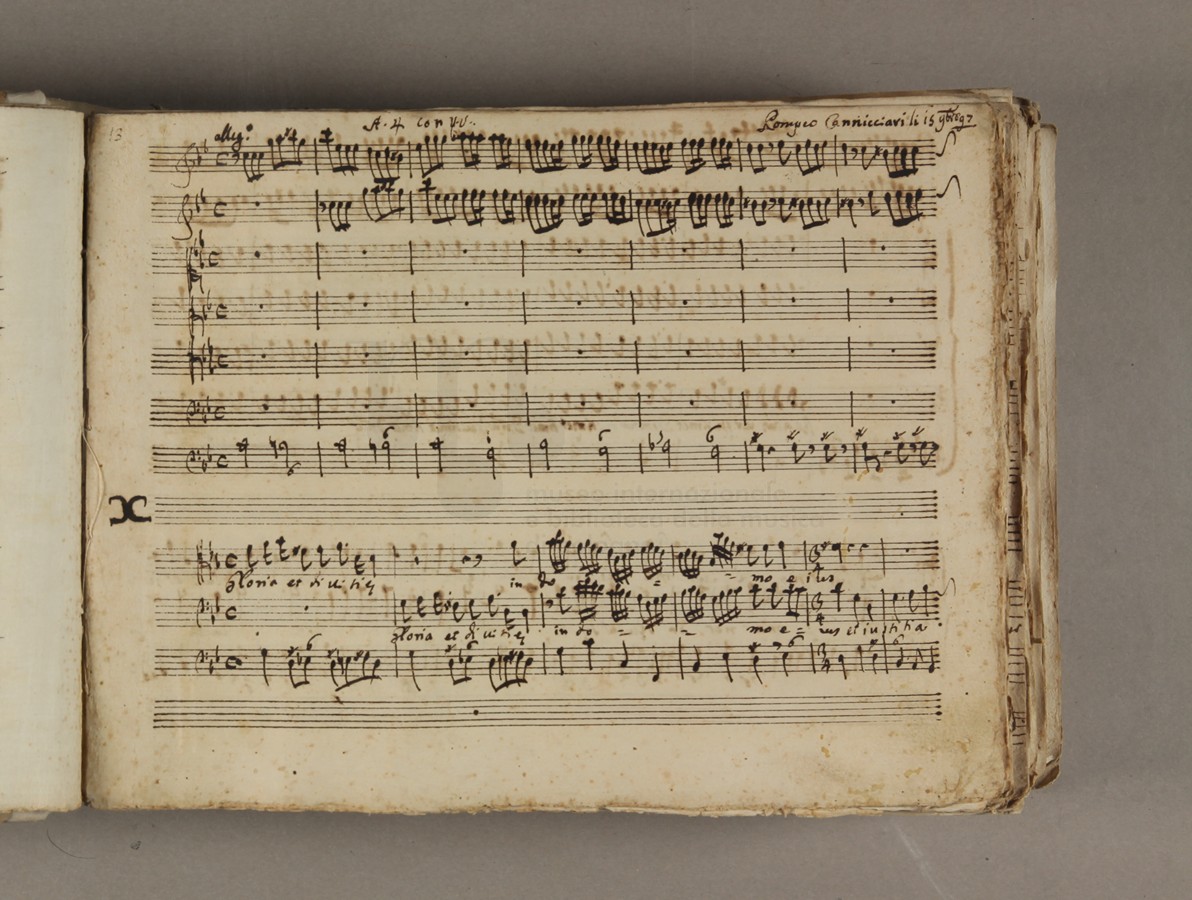 13
A. 4 con VV.
Pompeo Cannicciari li 15
alleg.º
gloria et divitię in do mo eius
gloria et divitię in do mo e us et iustitia